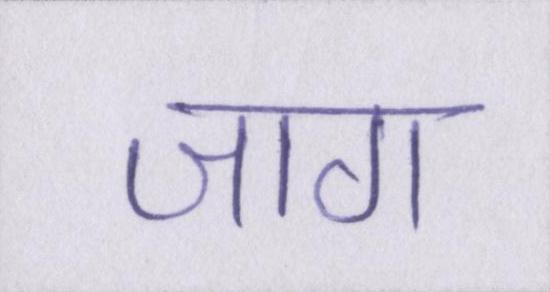 जाग